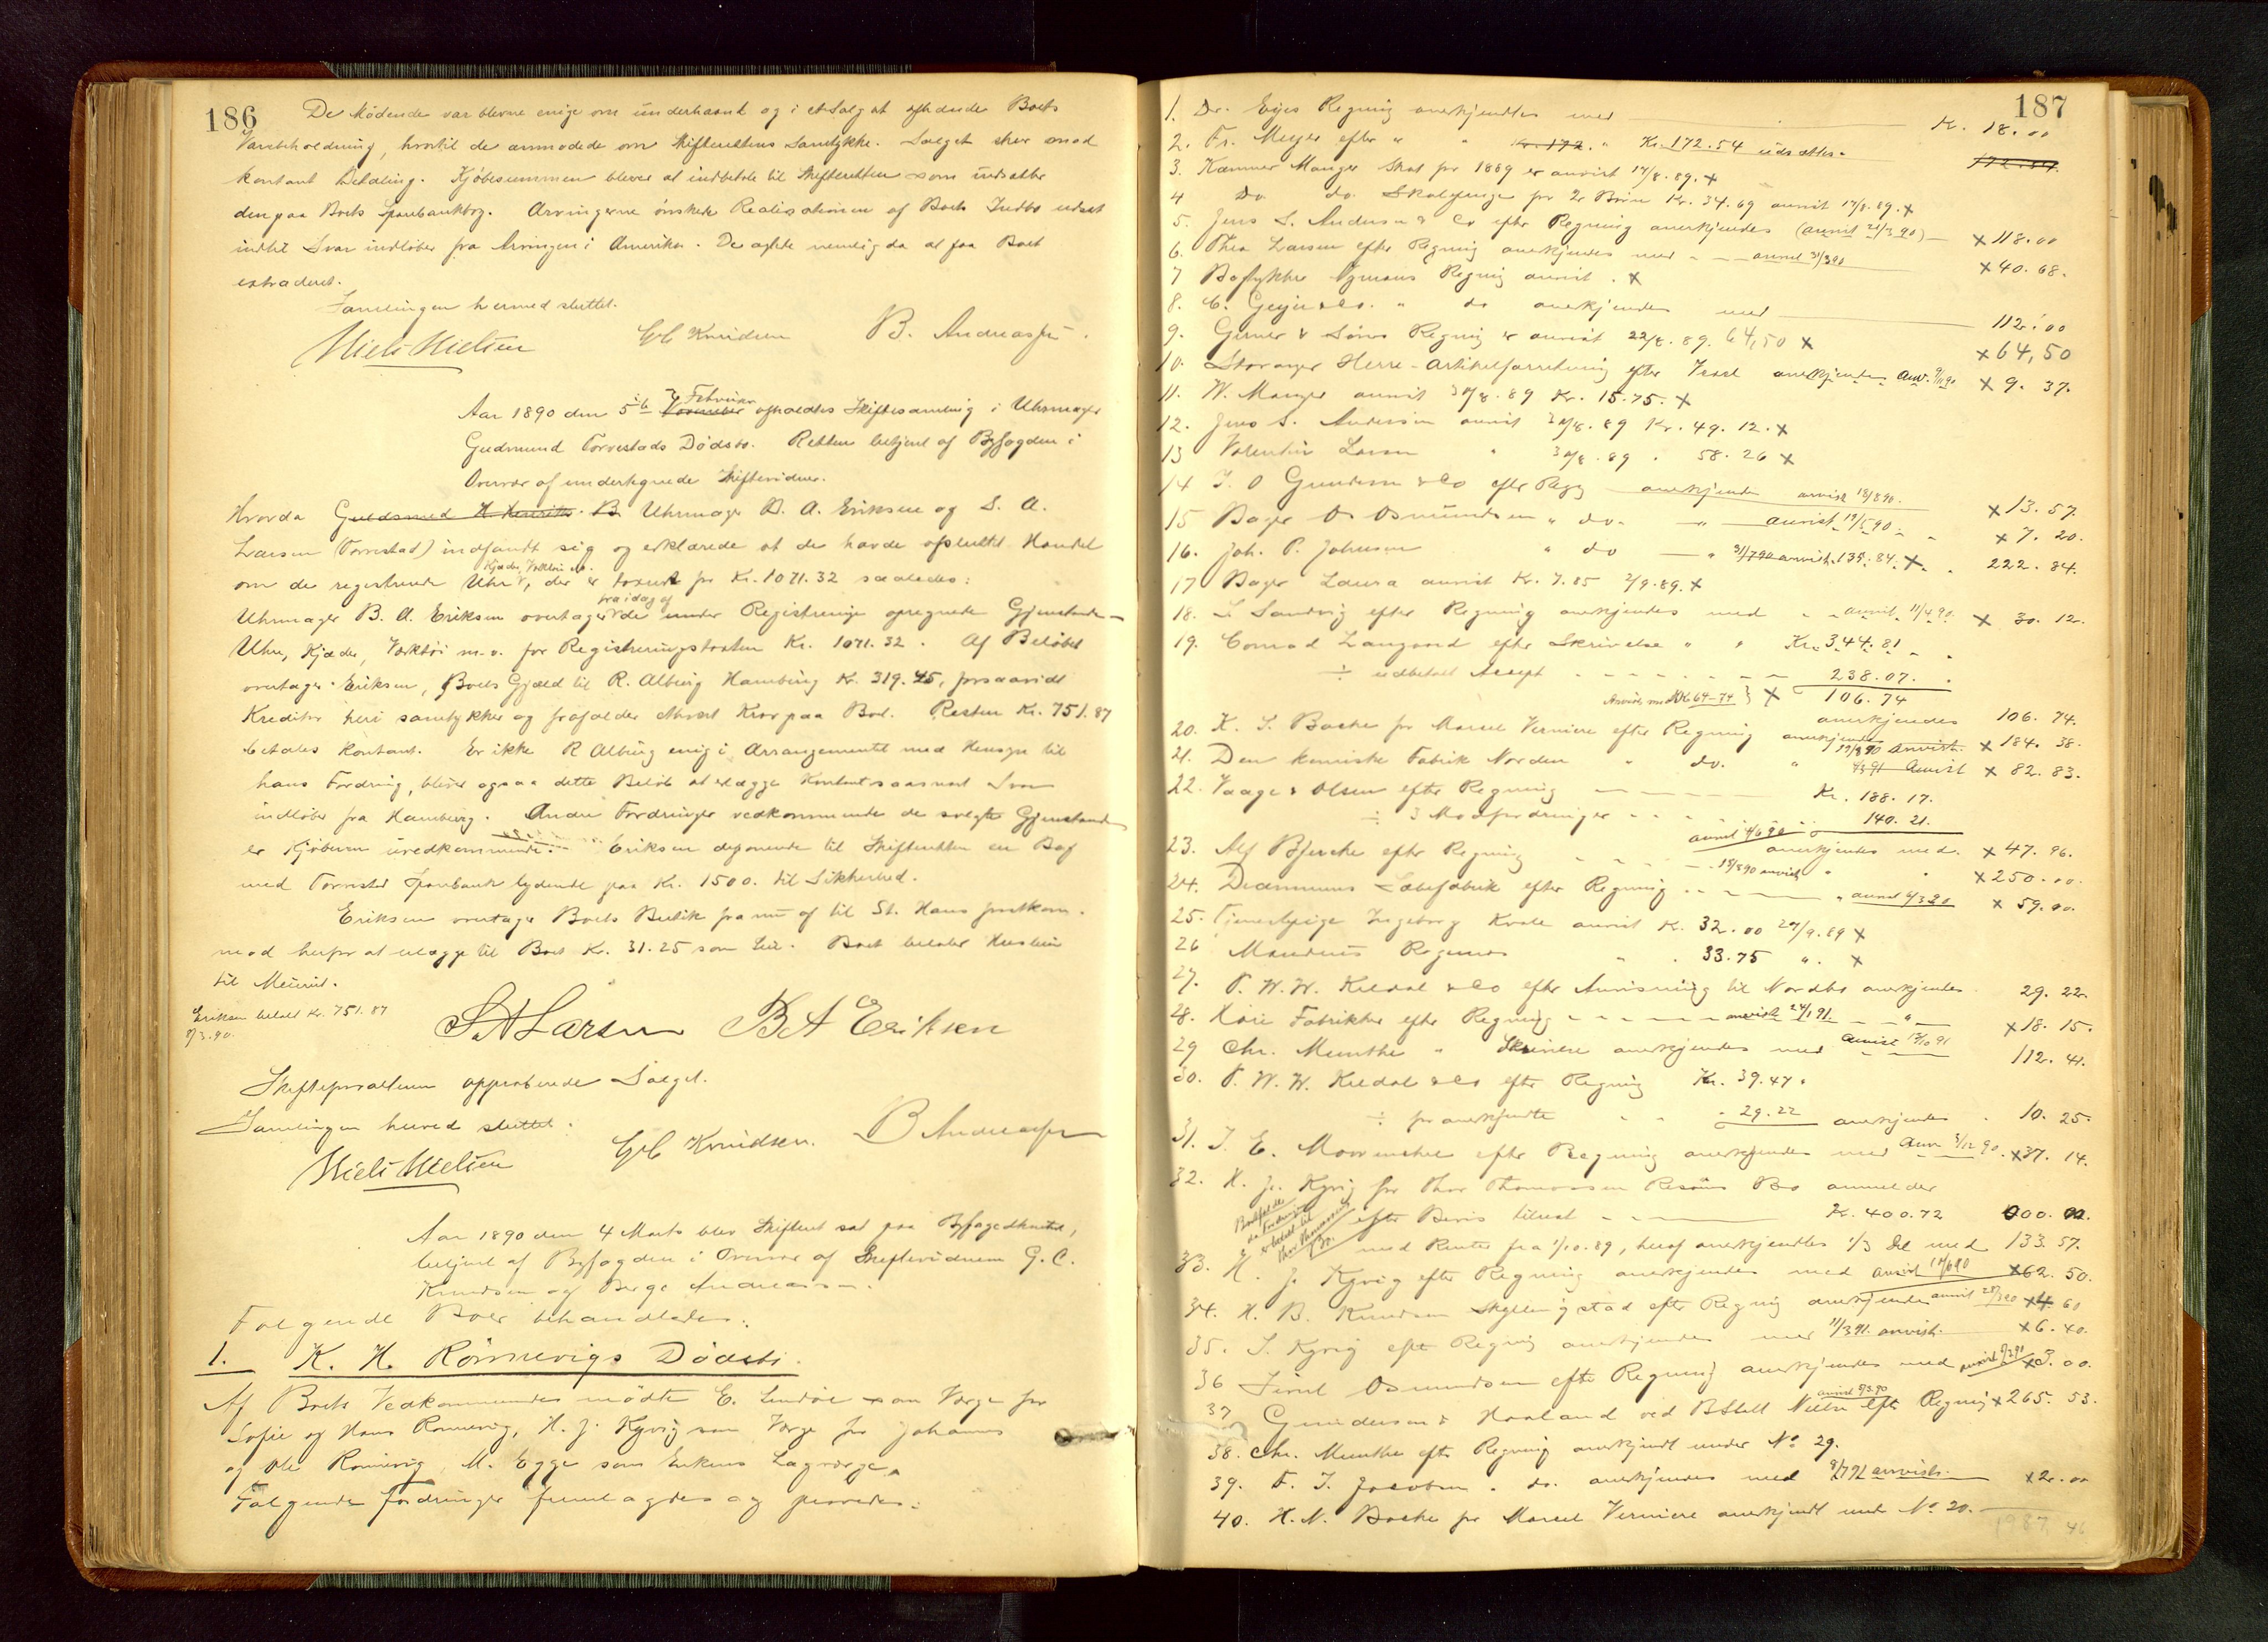 186
De Mødende var blevne enige om underhaand og i et Salg at afhænde Boets
Varebeholdning, hvortil de anmodede om Skifterettens Samtykke. Salget skeer mod
kontant Betaling. Kjøbesummen bliver at indbetale til Skifteretten som indsætter
den paa Boets Sparebankbog. Arvingerne ønskede Realisationen af Boets Indbo udsat
indtil Svar indløber fra Arvingen i Amerika. De agtede nemlig da at faa Boet
extraderet.
Samlingen hermed sluttet.
Niels Nielsen G C Knudsen B. Andreassen.
Aar 1890 den 5te Februar November afholdtes Skiftesamling i Uhrmager
Gudmund Torvestads Dødsbo. Retten betjent af Byfogden i
Overvær af undertegnede Skiftevidner.
Hvorda Guldsmed H. Henriks. B Uhrmager B. A. Eriksen og S. A.
Larsen (Torvestad) indfandt sig og erklærede at de havde afsluttet Handel
Kjæder, Værktøi etc.
om de registrerede Uhre, der er taxeret for Kr. 1071.32 saaledes:
fra idag af
Uhrmager B. A. Eriksen overtager de under Registreringen opregnede Gjenstande
Uhre, Kjæder, Værktøi m.v. for Registreringstaxten Kr. 1071.32. Af Beløbet
overtager Eriksen, Boets Gjæld til R. Alburg Hamburg Kr. 319.45, forsaavidt
Kreditor heri samtykker og frafalder ethvert Krav paa Boet. Resten Kr. 751.87
betales kontant. Er ikke R Alburg enig i Arrangementet med Hensyn til
hans Fordring, bliver ogsaa dette Beløb at erlægge Kontant saasnart Svar
indløber fra Hamburg. Andre Fordringer vedkommende de solgte Gjenstande
er Kjøberen uvedkommende. Eriksen deponerede til Skifteretten en Bog
med Torvestad Sparebank lydende paa Kr. 1500. til Sikkerhed.
Eriksen overtager Boets Butik fra nu af til St. Hans førstkom.
mod herfor at erlægge til Boet Kr. 31.25 som Leie. Boet betaler Husleie
til Meurit.
Eriksen betalt Kr. 751.87
8/3.90.
S A Larsen B A Eriksen
Skifteforvalteren approberede Salget.
Samlingen herved sluttet.
Niels Nielsen G C Knudsen. B Andreassen
Aar 1890 den 4 Marts blev Skifteret sat paa Byfogedkontoret,
betjent af Byfogden i Overvær af Skiftevidnerne G. C.
Knudsen og Berge Andreassen.
Følgende Boer behandledes:
1. K. H. Rønnevigs Dødsbo.
Af Boets Vedkommende mødte E. Lindøe som Værge for
Sofie og Hans Rønnevig, H. J. Kyvig som Værge for Johannes
og Ole Rønnevig, M. Egge som Enkens Lagværge.
Følgende fordringer fremlagdes og prøvedes:
187
1. Dr. Eyes Regning anerkjendtes med Kr. 18.00
2. Fr. Meyer efter " " Kr. 172. " Kr. 172.54 udsættes. 172.54
3. Kæmner Manger Skat for 1889 er anvist 17/8.89. x
4 Do do. Skolepenge for 2 Børn Kr. 34.69 anvist 17/8.89. x
5. Jens S. Andersen & Co efter Regning anerkjendes (anvist 21/3 90) x 118.00
6. Thea Larsen efter Regning anerkjendes med anvist 31/3 90 x 40.68.
7 Bogtrykker Nymans Regning anvist. x
8. C. Geyer & Co. " do anerkjendes med 112.00
9. Gerner & Søns Regning er anvist 22/8.89. 64,50 x x 64,50
10. Stavanger Herre-Artikelforretning efter Vexel anerkjendes Anv. 9/11 90 x 9.37.
11. W. Manger anvist 30/8.89 Kr. 15.75. x
12. Jens S. Andersen anvist 30/8.89 Kr. 49.12. x
13 Valentin Larsen " 30/8.89. 58.26 x
14 T. O Gundersen & Co efter Regg anerkjendes anvist 18/8 90. x 13.57
15 Bager Os Osmundsen " do. " anvist 19/5 90 x 7.20.
16. Joh. P. Johnsen " do " 31/7 90 anvist 135.84. x 222.84.
17 Bager Laura anvist Kr. 7.85 2/9.89. x
18. L Sandvig efter Regning anerkjendes med anvist 11/4 90. x 30.12.
19. Conrad Langaard efter Skrivelse " " Kr. 344.81
÷ udbetalt Accept 238.07.
x 106.74
anerkjendes 106.74.
20. H. S. Bache for Marcel Verniere efter Regning anerkjendes 19/8 90 anvist. x 184.38.
21. Den kemiske Fabrik Norden " do. " 4/3 91 Anvist x 82.83.
22. Vaage & Olsen efter Regning Kr. 188.17.
÷ 3 Modfordringer 140.21.
anvist 4/6 90 anerkjendes med. x 47.96.
23. Alf Bjercke efter Regning 18/8 90 anvist " x 250.00.
24. Drammens Sæbefabrik efter Regning " anvist 6/3 90 x 59.00.
25. Tjenestepige Ingeborg Kvale anvist Kr. 32.00 24/9.89 x
26 Mandrus Rasmus " . 33.75 ". x
27. P. W. W. Kildal & Co efter Anvisning til Nordbø anerkjendes 29.22
28. Køie Fabrikker efter Regning anvist 24/1 91. " x 18.15.
29 Chr. Munthe " Skrivelse anerkjendes med Anvist 13/10 91 112.41.
30. P. W. W. Kildal & Co efter Regning Kr. 39.47.
÷ før anerkjendte 29.22 anerkjendes . 10.25.
31. T. E. efter Regning anerkjendes med Anv 3/12 90. x 37.14.
32. H. J. Kyvig for Thor Thomassen Bo anmelder
efter Bevis tilvist Kr. 400.72 000.00.
med Renter fra 1/10.89, heraf anerkjendtes 1/3 Del med 133.57.
33. H. J. Kyvig efter Regning anerkjendes med anvist 10/6 90 x 62.50.
34. H. B. Knudsen Skjellingstad efter Regnig anerkjendes anvist 28/3 90 x 4.60
35. S. Kyvig eft Regnig anerkjendes med 11/3 91. anvist. x 6.40.
36 Osmundsen eft Regning anerkjendes med anvist x 3.00.
37 Gundersen & Haaland ved BStell Nielsen eft Regning x 265.53.
38. Chr. Munthe eft Regning anerkjendt under No 29.
39. F. T. Jacobsen . do. anerkjendes med 8/7 91 anvist. x 2.00
40. H. N. Bache for Marcel Verniere anerkjendt und No 20.
1987.46